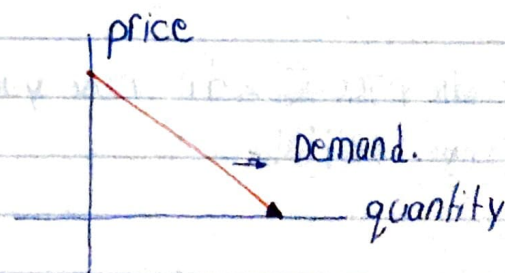 price
Demand.
quantity